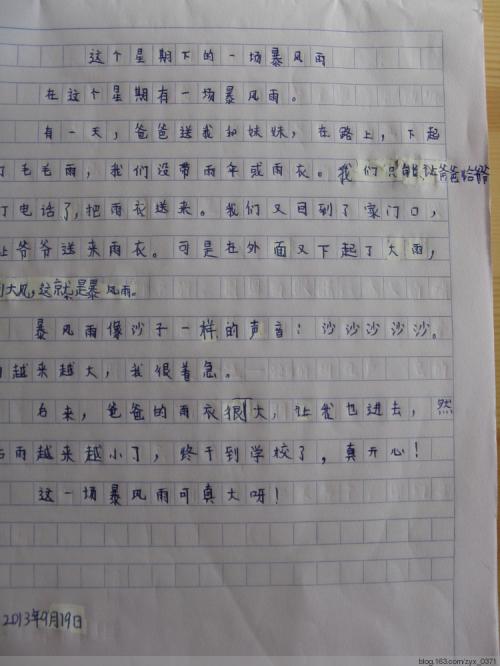 这个星期下的一场暴风雨
在这个星期有一场暴风雨。
有一天，爸爸送我和妹妹，在路上，下起
了毛毛雨，我们没带雨伞或雨衣。我们只能让爸爸给爷爷
打电话了，把雨衣送来。我们又回到了家门口，
让爷爷送来雨衣。可是在外面又下起了大雨，
刮大风，这就是暴风雨。
暴风雨像沙子一样的声音：沙沙沙沙沙。
雨越来越大，我很着急。
后来，爸爸的雨衣很大，让我也进去，然
后雨越来越小了，终于到学校了，真开心！
这一场暴风雨可真大呀！
2013年9月19日
blog.163.com/zyx_0371